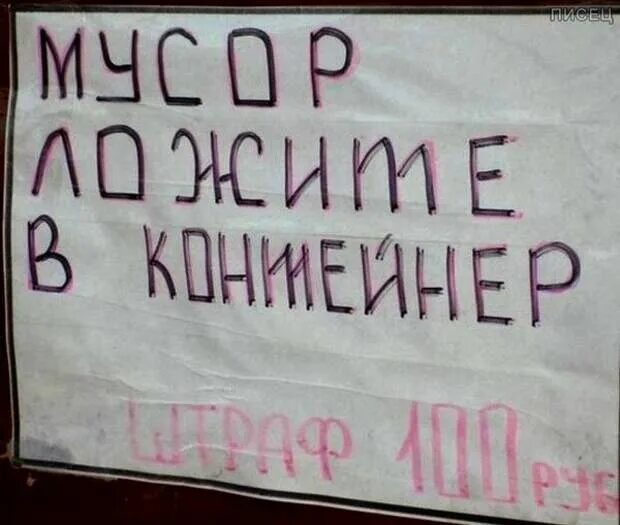 ПИСЕЦ
МУСОР
ЛОЖИТЕ
В КОНТЕЙНЕР
ШТРАФ 100 РУБ